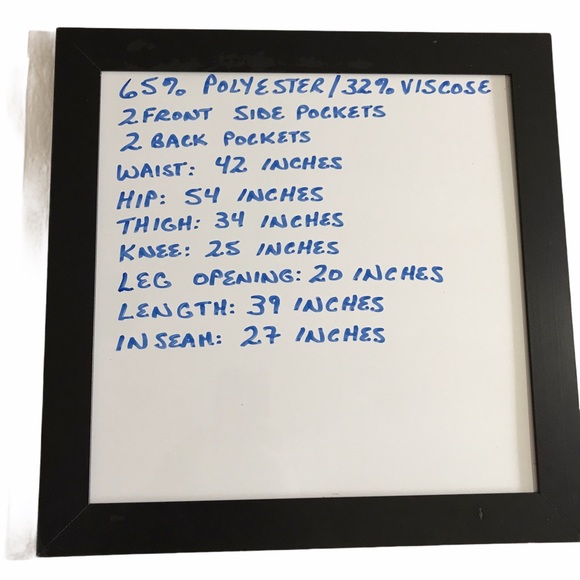 65% POLYESTER/32% VISCOSE
2 FRONT SIDE POCKETS
2 BACK POCKETS
WAIST: 42 INCHES
HIP: 54 INCHES
THIGH: 34 INCHES
KNEE: 25 INCHES
LEG OPENING: 20 INCHES
LENGTH: 39 INCHES
INSEAM: 27 INCHES